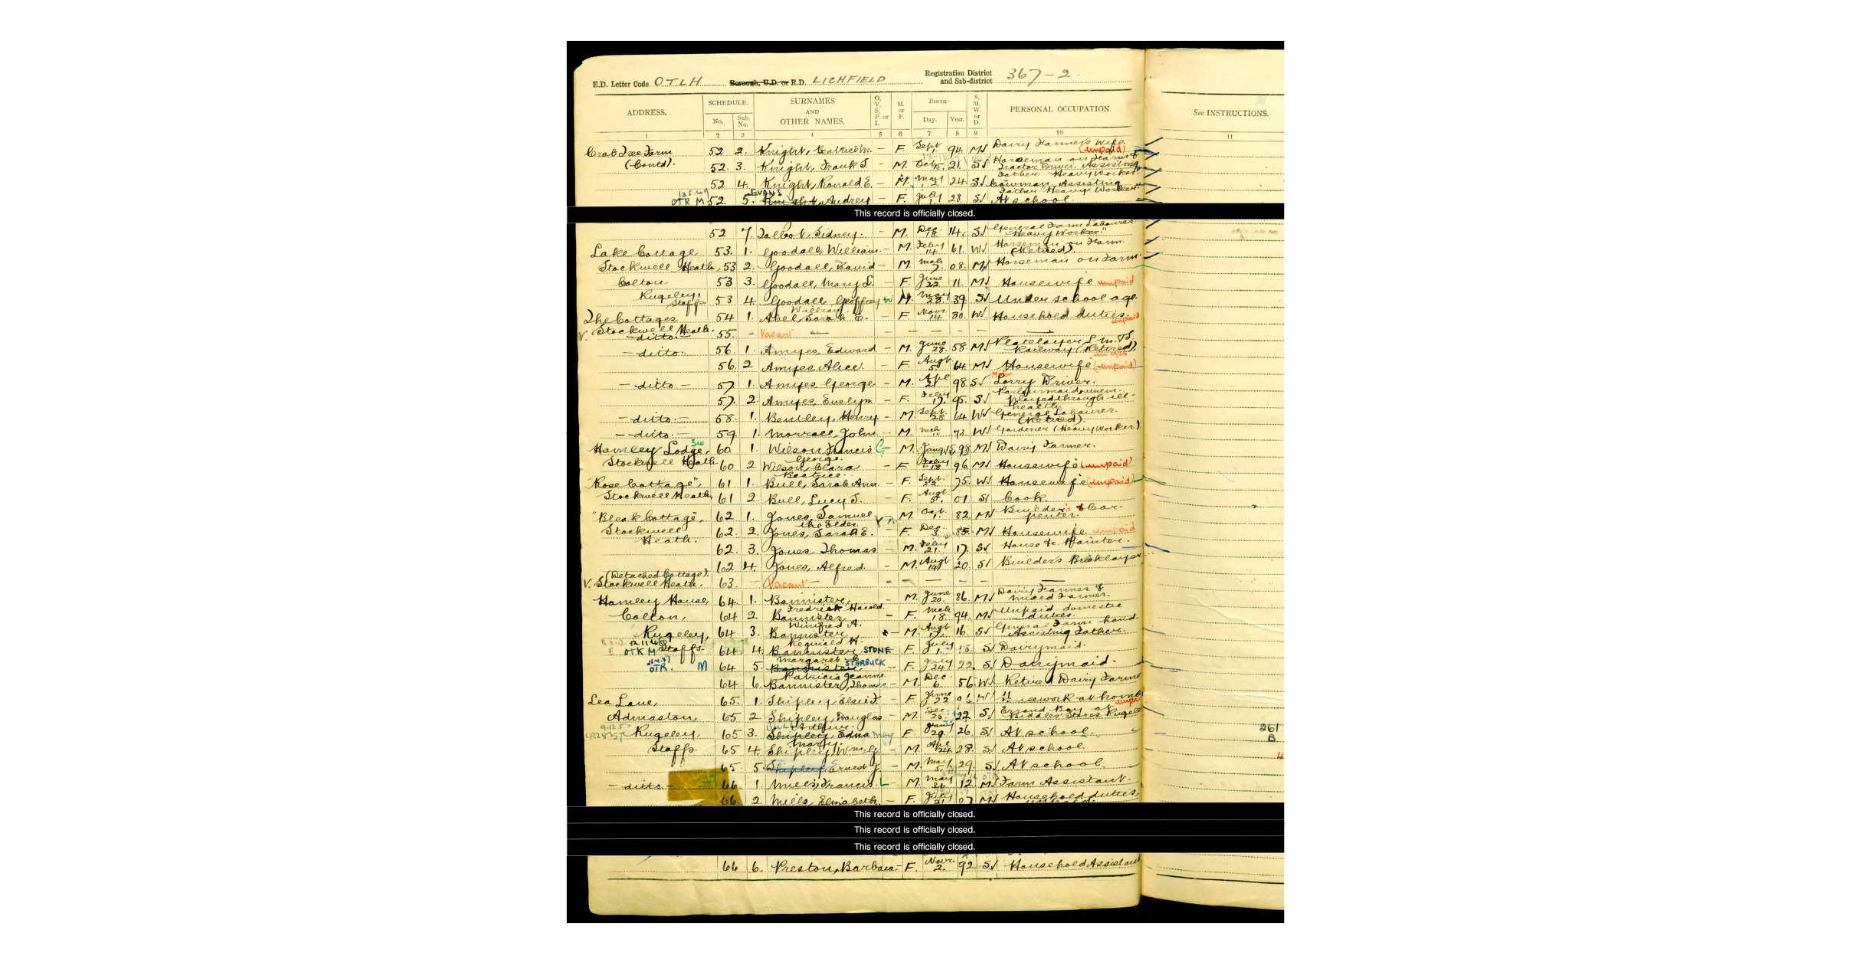 E.D. Letter Code OTLH Borough, U.D. or R.D. LICHFIELD Registration District and Sub-district 367-2
ADDRESS. SCHEDULE. SURNAMES AND OTHER NAMES. O. V. S. P. or I. M. or F. BIRTH- S. M. W. or D. PERSONAL OCCUPATION. See INSTRUCTIONS.
No. Sub. No. Day. Year.
1 2 3 4 5 6 7 8 9 10 11
Crab Tree Farm 52 2. Knight, - F. Sept 94 M Dairy Farmer's Wife (unpaid)
(Contd). 52 3. Knight, Frank - M. Oct 21 S Horseman on Farm & Tractor Driver Assisting Father Heavy Worker
52 4. Knight, Ronald E. - M. May 24 S Cowman Assisting Father Heavy Worker
OTR M 52 5. Knight, Audrey EVANS - F. July 28 S At school
This record is officially closed.
52 7. Talbot Sidney. - M. Dec 18 14. S General Farm Labourer "Heavy Worker"
Lake Cottage 53. 1. Goodall William - M. Feby 61. W Horseman on Farm (Retired)
Stockwell Heath, 53 2. Goodall, David - M. Mch 7 08. M Horseman on Farm
Colton 53 3. Goodall, Mary - F. June 22 11. M Housewife unpaid
Rugeley. Staffs 53 4. Goodall Geoffrey William M. May 39. S Under school age
The Cottages 54 1. Abel Sarah E. - F. Nov 14 80. W Household duties. unpaid
V. Stockwell Heath.
- ditto - 55. - Vacant
- ditto - 56. 1. Amyes Edward - M. June 28 58 M Platelayer L.M.S Railway (Retired)
56. 2 Amyes Alice. - F. Augt 64 M Housewife (unpaid)
- ditto - 57. 1. Amyes George - M. Apl 98 S Lorry Driver.
57. 2. Amyes Evelyn - F. 17 95. S through ill-health
- ditto - 58. 1. Bentley, Henry - M. Sept 28 64 W General Labourer. (Retired)
- ditto - 59 1. Morrall, John. M. Mch 73 W Gardener (Heavy Worker)
Hamley Lodge, 60 1 Wilson Francis George. M. 98 M Dairy Farmer.
Stockwell Heath 60 2 Wilson Clara Beatrice - F. Feby 18 96 M Housewife (unpaid)
"Rose Cottage", 61 1. Bull, Sarah Ann - F. Sept 75. W Housewife (unpaid)
Stockwell Heath, 61 2. Bull, Lucy - F. Augt 01 S Cook
"Bleak Cottage", 62 1. Jones, Samuel the Elder M. 82 M Builder's Carpenter.
Stockwell Heath. 62. 2. Jones, Sarah E. - F. Dec 85. M Housewife unpaid
62. 3. Jones Thomas - M. Feby 21. 17. S House Painter.
62 4. Jones, Alfred M. Augt 20. S Builder's Bricklayer
(Detached Cottage).
V. Stockwell Heath. 63. - Vacant
Hamley House, 64. 1. Bannister, Fredrick Harold M. June 20. 86. M Dairy Farmer & Mixed Farmer.
Colton, 64 2 Bannister Winifred A. - F. Mch 18. 94. M Unpaid domestic duties.
Rugeley, 64 3. Bannister Reginald H. - M. Augt 16. S General Farm hand. Assisting Father.
OTR M Staffs. 64 4. Bannister Margaret STONE F. July 1. 18 S Dairymaid.
OTR. M 64 5 Bannister Patricia Jeanne STARBUCK F. 22. S Dairymaid.
64 6. Bannister, Thomas - M. Dec 6. 56 W Retired Dairy Farmer
Lea Lane, 65. 1. Shipley, Elsie - F. June 22 Housework at home unpaid
Admaston, 65 2 Shipley Douglas M. Dec 22 S Errand Boy at Stores Rugeley
Rugeley, 65 3. Shipley, Edna Mary F. 29 26 S At school
Staffs 65 4. Shipley, - M. 28. S At school
65 5 Shipley, Ernest - M. May 29 S At school.
261 B.
- ditto - 66 1 Mills, Francis L M. May 12 M Farm Assistant.
66. 2. Mills, Elizabeth - F. 07 M Household duties,
This record is officially closed.
This record is officially closed.
This record is officially closed.
66 6. Preston, Barbara - F. Novr. 2. 92 S Household Assistant